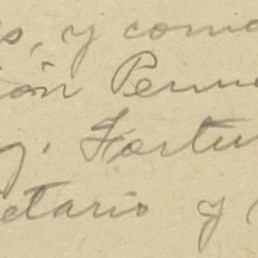 s, y como
ión Perma
y. Fortu
etario y